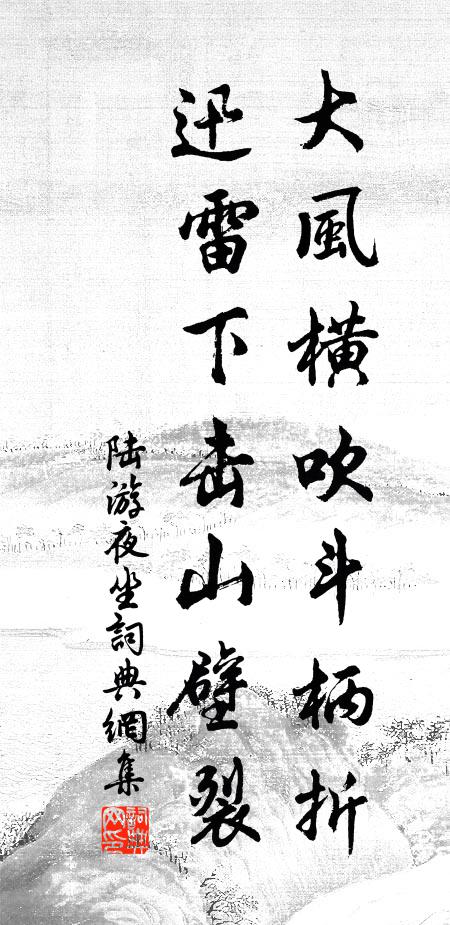 大風橫吹斗柄折
迅雷下击山壁裂
陆游夜坐詞典網集